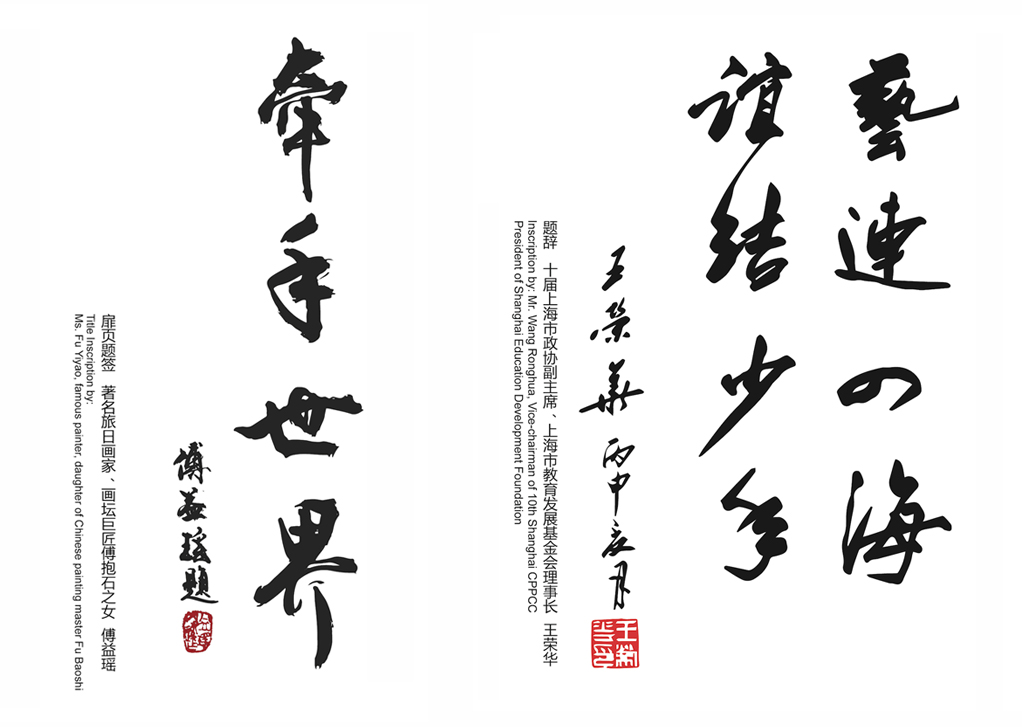 牽手世界
傅益瑤題
扉页题签 著名旅日画家、画坛巨匠傅抱石之女 傅益瑶
Title Inscription by:
Ms. Fu Yiyao, famous painter, daughter of Chinese painting master Fu Baoshi
藝連四海
誼結少年
王榮華 丙申夏月
题辞 十届上海市政协副主席、上海市教育发展基金会理事长 王荣华
Inscription by: Mr. Wang Ronghua, Vice-chairman of 10th Shanghai CPPCC
President of Shanghai Education Development Foundation